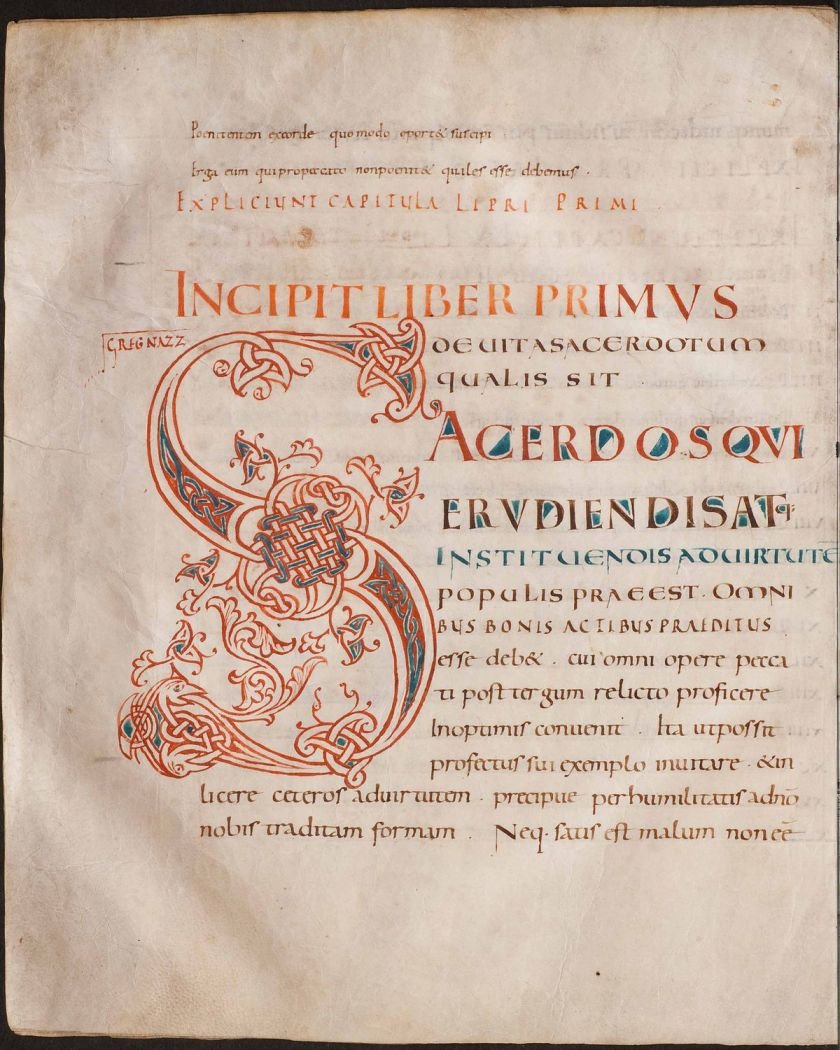 Poenitentem ex corde quomodo oport& suscipi
Erga eum qui pro peccato non poenit& quales esse debemus .
EXPLICIUNT CAPITULA LIBRI PRIMI .
INCIPIT LIBER PRIMVS
GREG NAZZ
DE UITA SACERDOTUM
QUALIS SIT
SACERDOS QVI
ERVDIENDIS AT Q:
INSTITUENDIS AD UIRTUTĒ
POPULIS PRAEEST. OMNI
BUS BONIS ACTIBUS PRAEDITUS .
esse deb& . cui omni opere pecca
ti post tergum relicto proficere
In optimis conuenit . Ita ut possit
profectus sui exemplo inuitare . & in
licere ceteros ad uirtutem . precipue per humilitatis ad nō
nobis traditam formam . Neq. satis est malum non eē